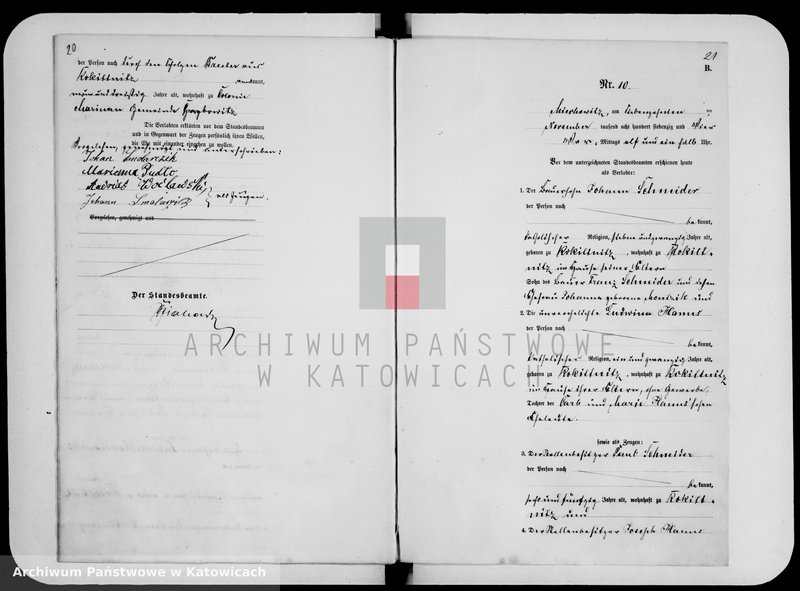 20
der Person nach durch den Scholzen Kreder aus
Rokittnitz bekannt,
neun und dreißig Jahre alt, wohnhaft zu Colonie
Marinau Gemeinde
Die Verlobten erklärten vor dem Standesbeamten
und in Gegenwart der Zeugen persönlich ihren Willen,
die Ehe mit einander eingehen zu wollen.
Vorgelesen, genehmigt und unterschrieben:
Johan
Marianna Pudlo
Andrias Woclawski
Johann als Zeugen.
Vorgelesen, genehmigt und
Der Standesbeamte.
21
B.
Nr. 10.
Miechowitz, am siebenzehnten ten
November tausend acht hundert siebenzig und Vier
Vor, Mittags elf und ein halb Uhr.
Vor dem unterzeichneten Standesbeamten erschienen heute
als Verlobte:
1. Der Bauersohn Johann Schneider
der Person nach
be kannt,
katholischer Religion, sieben und zwanzig Jahre alt,
geboren zu Rokittnitz, wohnhaft zu Rokitt-
nitz im Hause seiner Eltern
Sohn des Bauer Franz Schneider und dessen
Ehefrau Johanna geborene und
2. Die unverehelichte Ludwina Hanus
der Person nach
be kannt,
katholischer Religion, ein und zwanzig Jahre alt,
geboren zu Rokittnitz, wohnhaft zu Rokittnitz
im Hause ihrer Eltern, ohne Gewerbe.
Tochter der Carl und Marie Hanus'schen
Eheleute.
sowie als Zeugen:
3. Der Stellenbesitzer Paul Schneider
der Person nach
be kannt,
sechs und fünfzig Jahre alt, wohnhaft zu Rokitt-
nitz und
4. Der Stellenbesitzer Joseph Hanus
ARCHIWUM PAŃSTWOWE
W KATOWICACH
Archiwum Państwowe w Katowicach